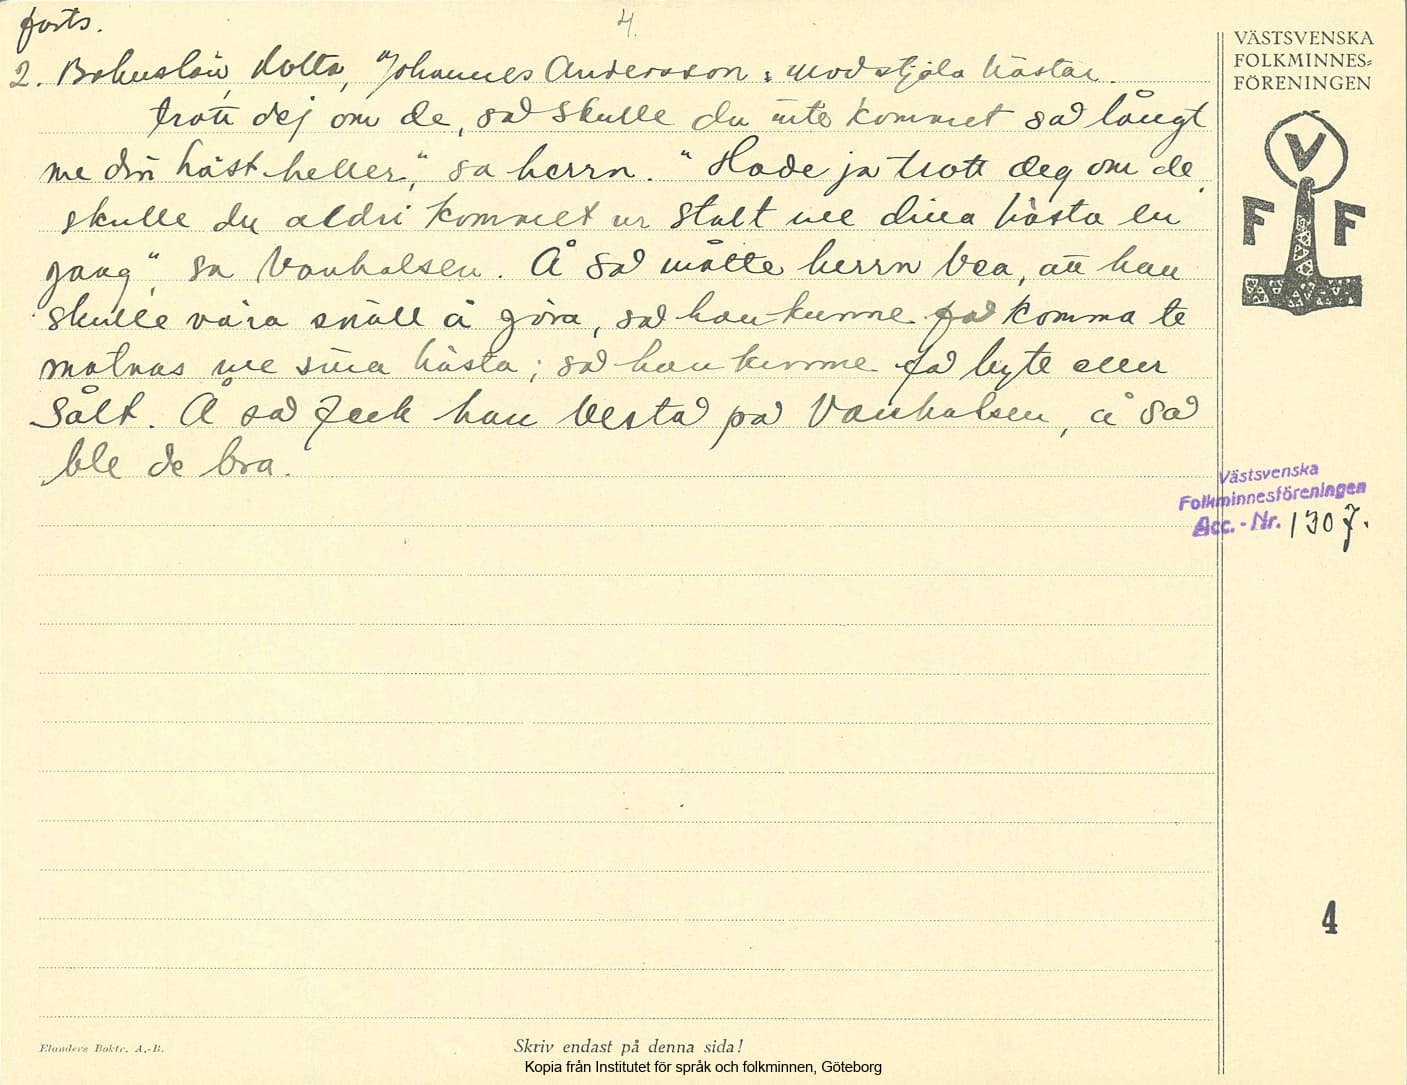 forts.
4.
2. Bohuslän, Hotta, "Johannes Andersson: mod stjäla hästar.
trott dej om de, så skulle du inte kommet så långt
me din häst heller," sa herrn. "Hade ja trott deg om de,
skulle du aldri kommet ur stalt me dina hästa en
gang", sa Vanhalsen. Å så måtte herrn bea, att han
skulle våra snäll å göra, så han kunne få komma te
matnas me sina hästa; så han kunne få byte eller
sålt. Å så feck han besta på Vanhalsen, å så
ble de bra.
VÄSTSVENSKA
FOLKMINNES=
FÖRENINGEN
V
F F
Västsvenska
Folkminnesföreningen
Acc.-Nr. 1307.
4
Elanders Boktr. A.-B.
Skriv endast på denna sida!
Kopia från Institutet för språk och folkminnen, Göteborg